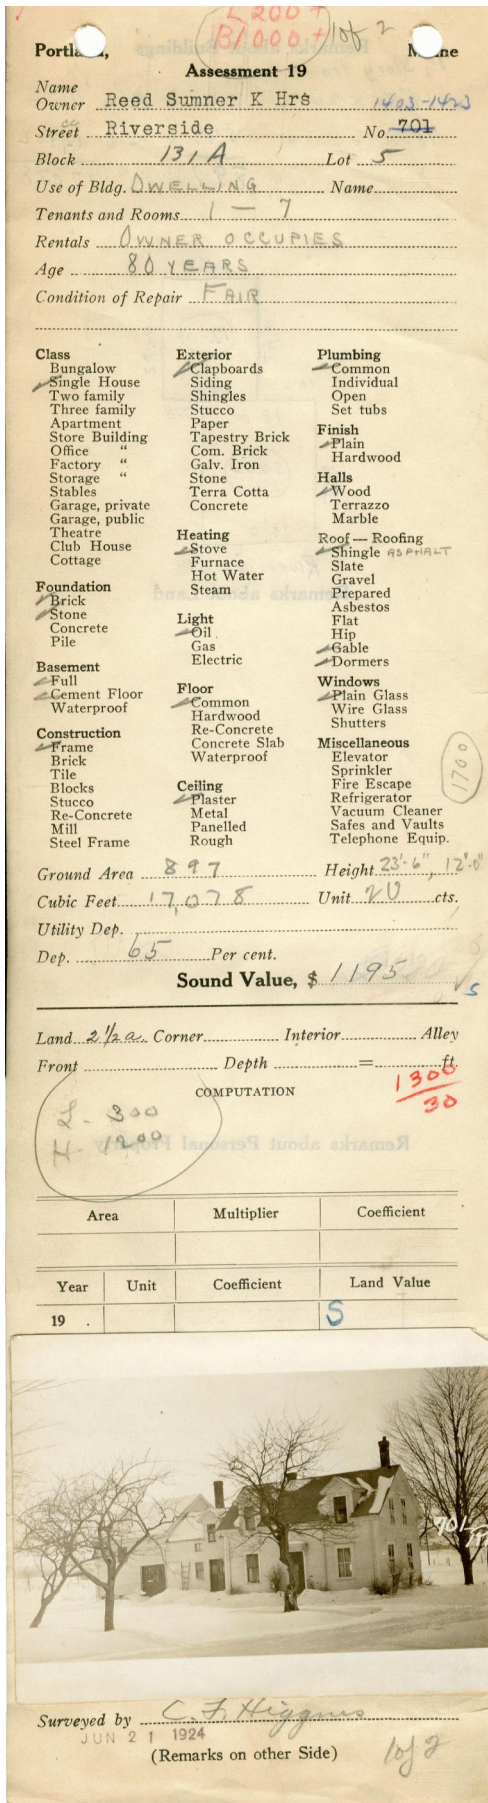 L 200 +
B 1000 + 1 of 2
Portland, Maine
Assessment 19
Name
Owner Reed Sumner K Hrs 1403-1423
Street Riverside No. 701
Block 131A Lot 5
Use of Bldg. DWELLING Name
Tenants and Rooms 1 — 7
Rentals OWNER OCCUPIES
Age 80 YEARS
Condition of Repair FAIR
Class
Bungalow
Single House
Two family
Three family
Apartment
Store Building
Office "
Factory "
Storage "
Stables
Garage, private
Garage, public
Theatre
Club House
Cottage
Foundation
Brick
Stone
Concrete
Pile
Basement
Full
Cement Floor
Waterproof
Construction
Frame
Brick
Tile
Blocks
Stucco
Re-Concrete
Mill
Steel Frame
Exterior
Clapboards
Siding
Shingles
Stucco
Paper
Tapestry Brick
Com. Brick
Galv. Iron
Stone
Terra Cotta
Concrete
Heating
Stove
Furnace
Hot Water
Steam
Light
Oil
Gas
Electric
Floor
Common
Hardwood
Re-Concrete
Concrete Slab
Waterproof
Ceiling
Plaster
Metal
Panelled
Rough
Plumbing
Common
Individual
Open
Set tubs
Finish
Plain
Hardwood
Halls
Wood
Terrazzo
Marble
Roof — Roofing
Shingle ASPHALT
Slate
Gravel
Prepared
Asbestos
Flat
Hip
Gable
Dormers
Windows
Plain Glass
Wire Glass
Shutters
Miscellaneous
Elevator
Sprinkler
Fire Escape
Refrigerator
Vacuum Cleaner
Safes and Vaults
Telephone Equip.
1700
Ground Area 897 Height 23'-6", 12'-0"
Cubic Feet 17,078 Unit 20 cts.
Utility Dep.
Dep. 65 Per cent.
Sound Value, $ 1195
S
Land 2 1/2 a. Corner Interior Alley
Front Depth = ft.
1300
30
COMPUTATION
L - 300
H - 1200
Area Multiplier Coefficient
Year Unit Coefficient Land Value
19 . S
701
Surveyed by C. F. Higgins
JUN 21 1924
(Remarks on other Side) 1 of 2